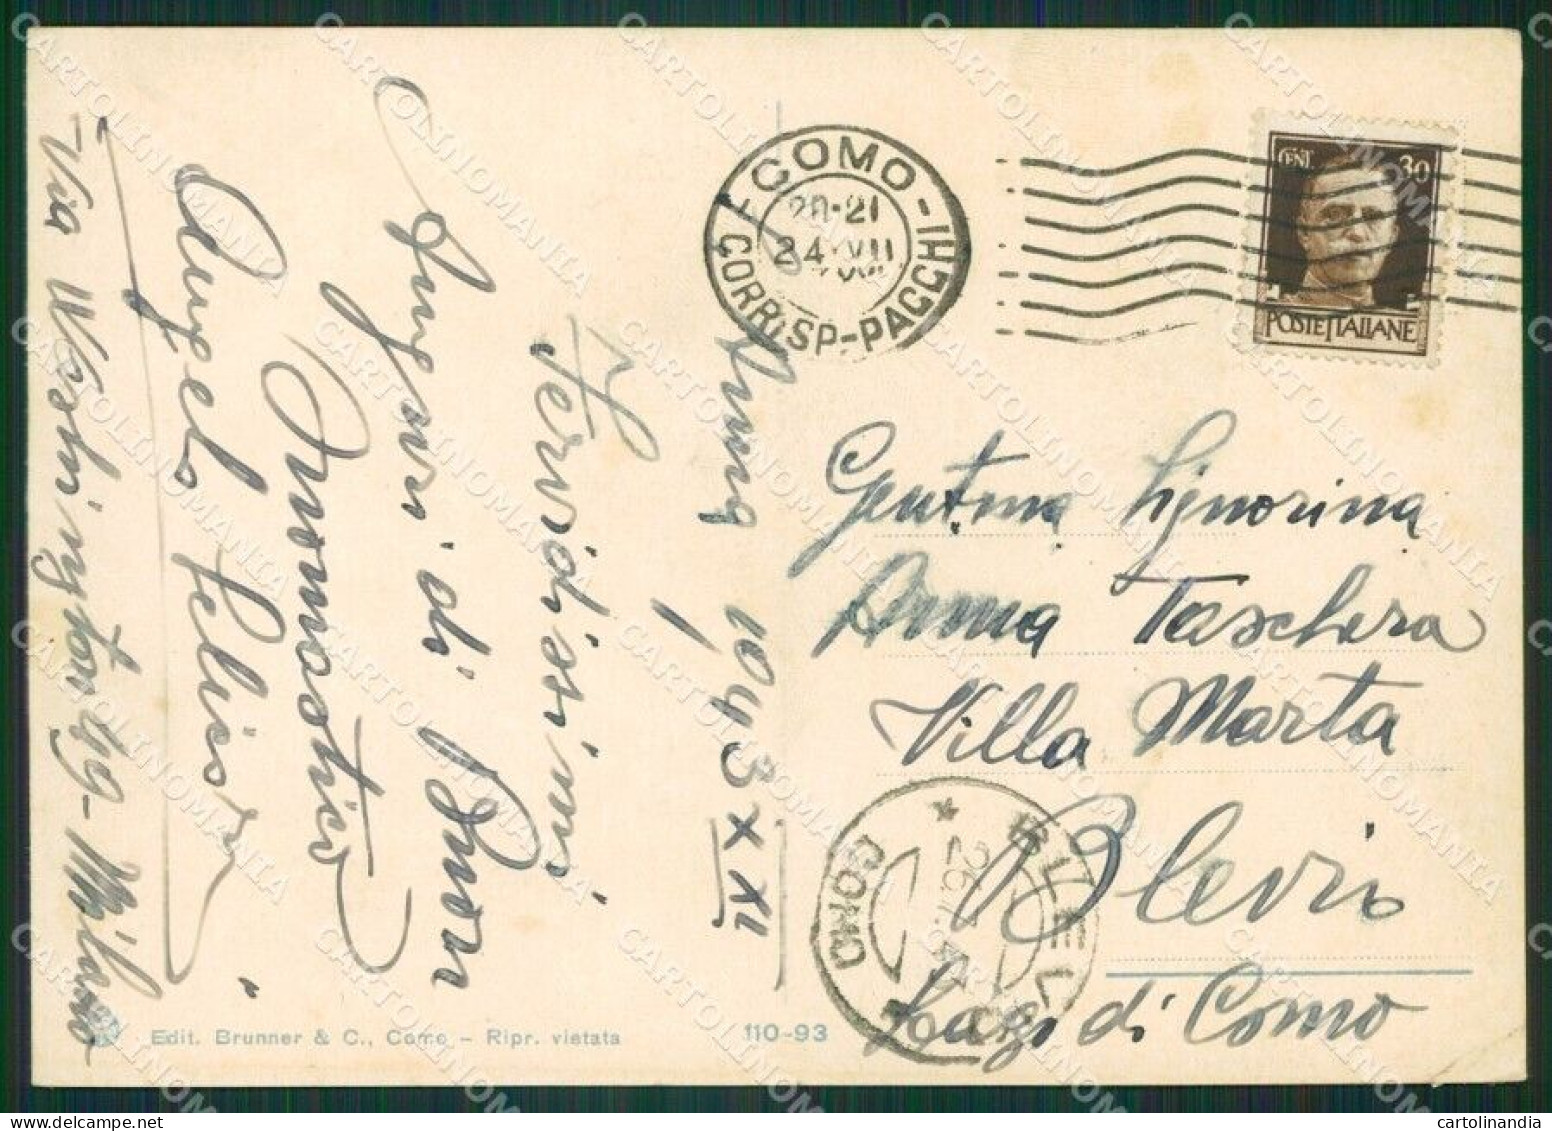 COMO - CORRISP-PACCHI
20-21
24·VII
CENT 30
POSTE ITALIANE
1943 XXI
Fervidissimi
Auguri di Buon
Onomastico
Angelo
Via Washington 49 - Milano
Gent.ma Signorina
Anna Taschera
Villa Marta
Blevio
Lago di Como
BLEVIO
COMO
Edit. Brunner & C., Como - Ripr. vietata
110-93
CARTOLINOMANIA
cartolinandia